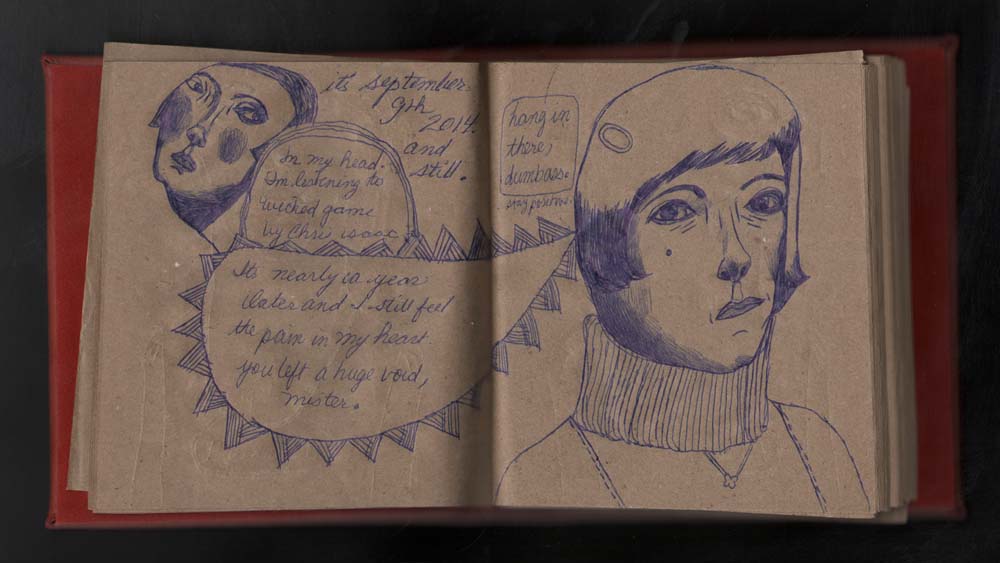 it's september
9th
2014.
and
still.
In my head.
I'm listening to
wicked game
by Chris isaac
It's nearly a year
later and I still feel
the pain in my heart.
you left a huge void,
mister.
hang in
there,
dumbass.
stay positive.